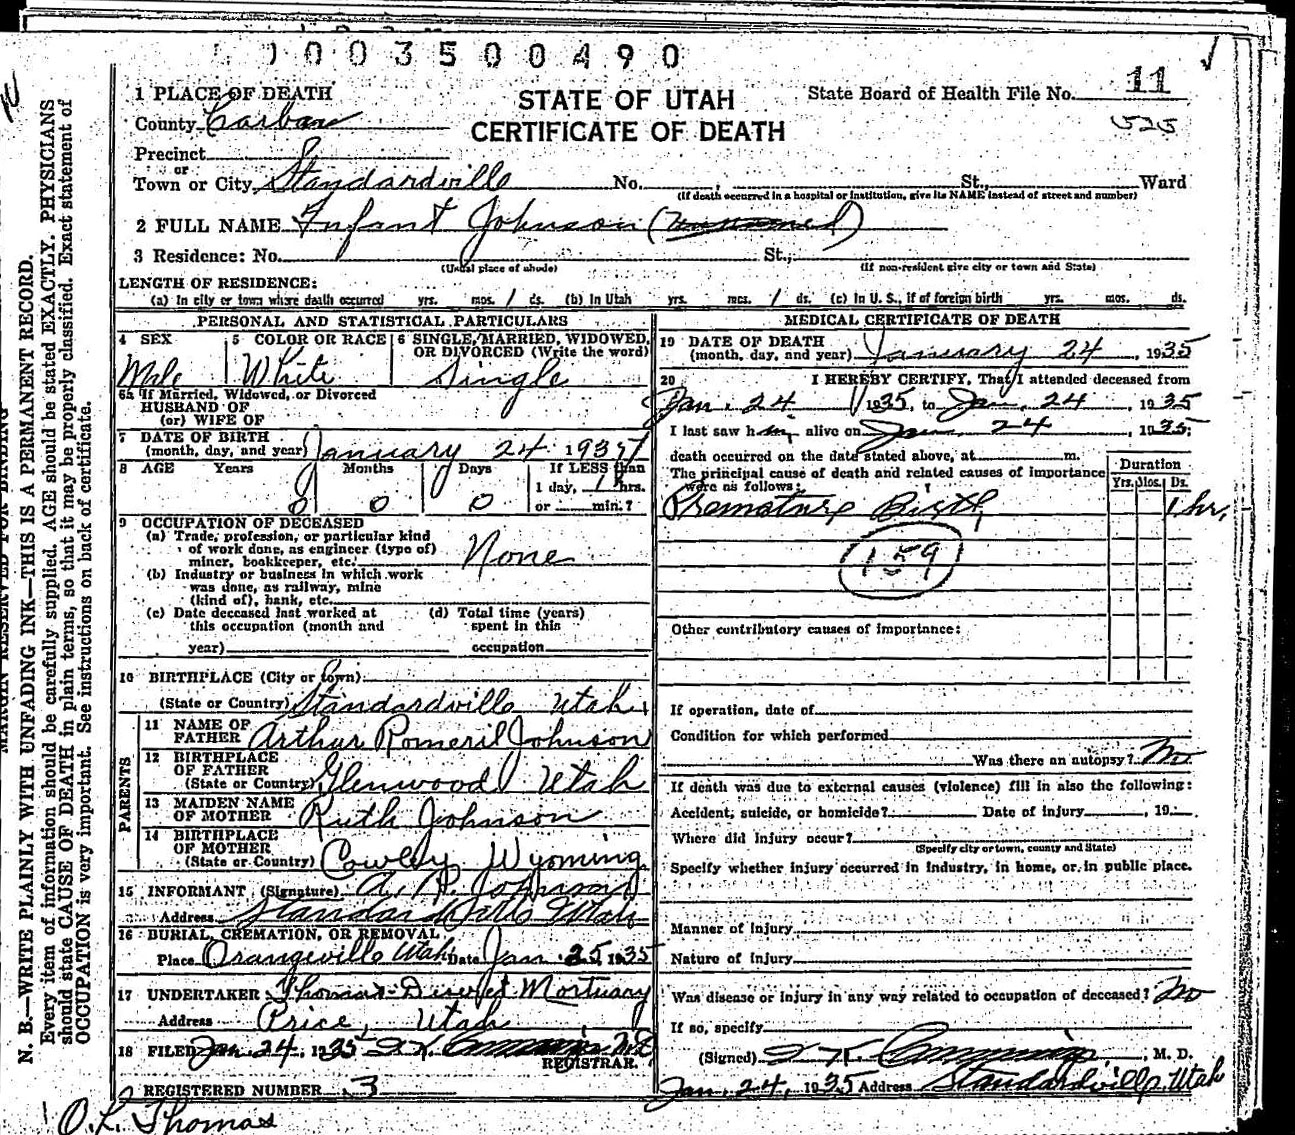 1 0 0 3 5 0 0 4 9 0
1 PLACE OF DEATH
STATE OF UTAH
CERTIFICATE OF DEATH
State Board of Health File No. 11
525
County Carbon
Precinct
or
Town or City Standardville No. , St., Ward
(If death occurred in a hospital or institution, give its NAME instead of street and number)
2 FULL NAME Infant Johnson (unnamed)
3 Residence: No. St.,
(Usual place of abode) (If non-resident give city or town and State)
LENGTH OF RESIDENCE:
(a) In city or town where death occurred yrs. mos. 1 ds. (b) In Utah yrs. mos. 1 ds. (c) In U. S., if of foreign birth yrs. mos. ds.
PERSONAL AND STATISTICAL PARTICULARS
4 SEX Male
5 COLOR OR RACE White
6 SINGLE, MARRIED, WIDOWED, OR DIVORCED (Write the word) Single
6a If Married, Widowed, or Divorced
HUSBAND OF
(or) WIFE OF
7 DATE OF BIRTH
(month, day, and year) January 24 1935
8 AGE Years Months Days If LESS than
0 0 0 1 day, 1 hrs.
or min.?
9 OCCUPATION OF DECEASED
(a) Trade, profession, or particular kind
of work done, as engineer (type of)
miner, bookkeeper, etc. None
(b) Industry or business in which work
was done, as railway, mine
(kind of), bank, etc.
(c) Date deceased last worked at
this occupation (month and
year)
(d) Total time (years)
spent in this
occupation
10 BIRTHPLACE (City or town)
(State or Country) Standardville Utah
PARENTS
11 NAME OF
FATHER Arthur Romeril Johnson
12 BIRTHPLACE
OF FATHER
(State or Country) Glenwood Utah
13 MAIDEN NAME
OF MOTHER Ruth Johnson
14 BIRTHPLACE
OF MOTHER
(State or Country) Cowley Wyoming
15 INFORMANT (Signature) A. R. Johnson
Address Standardville Utah
16 BURIAL, CREMATION, OR REMOVAL
Place Orangeville Utah Date Jan 25, 1935
17 UNDERTAKER Thomas Mortuary
Address Price, Utah
18 FILED Jan. 24, 1935
REGISTRAR.
REGISTERED NUMBER 3
O. L. Thomas
MEDICAL CERTIFICATE OF DEATH
19 DATE OF DEATH
(month, day, and year) January 24, 1935
20 I HEREBY CERTIFY, That I attended deceased from
Jan. 24 1935, to Jan. 24, 1935
I last saw him alive on Jan. 24, 1935;
death occurred on the date stated above, at m.
The principal cause of death and related causes of importance
were as follows:
Duration
Yrs. Mos. Ds.
Premature Birth 1 hr.
159
Other contributory causes of importance:
If operation, date of
Condition for which performed
Was there an autopsy? No
If death was due to external causes (violence) fill in also the following:
Accident, suicide, or homicide? Date of injury , 19
Where did injury occur?
(Specify city or town, county and State)
Specify whether injury occurred in industry, in home, or in public place.
Manner of injury
Nature of injury
Was disease or injury in any way related to occupation of deceased? No
If so, specify
(Signed) , M. D.
Jan. 24, 1935 Address Standardville, Utah
N. B.—WRITE PLAINLY WITH UNFADING INK—THIS IS A PERMANENT RECORD.
Every item of information should be carefully supplied. AGE should be stated EXACTLY. PHYSICIANS
should state CAUSE OF DEATH in plain terms, so that it may be properly classified. Exact statement of
OCCUPATION is very important. See instructions on back of certificate.